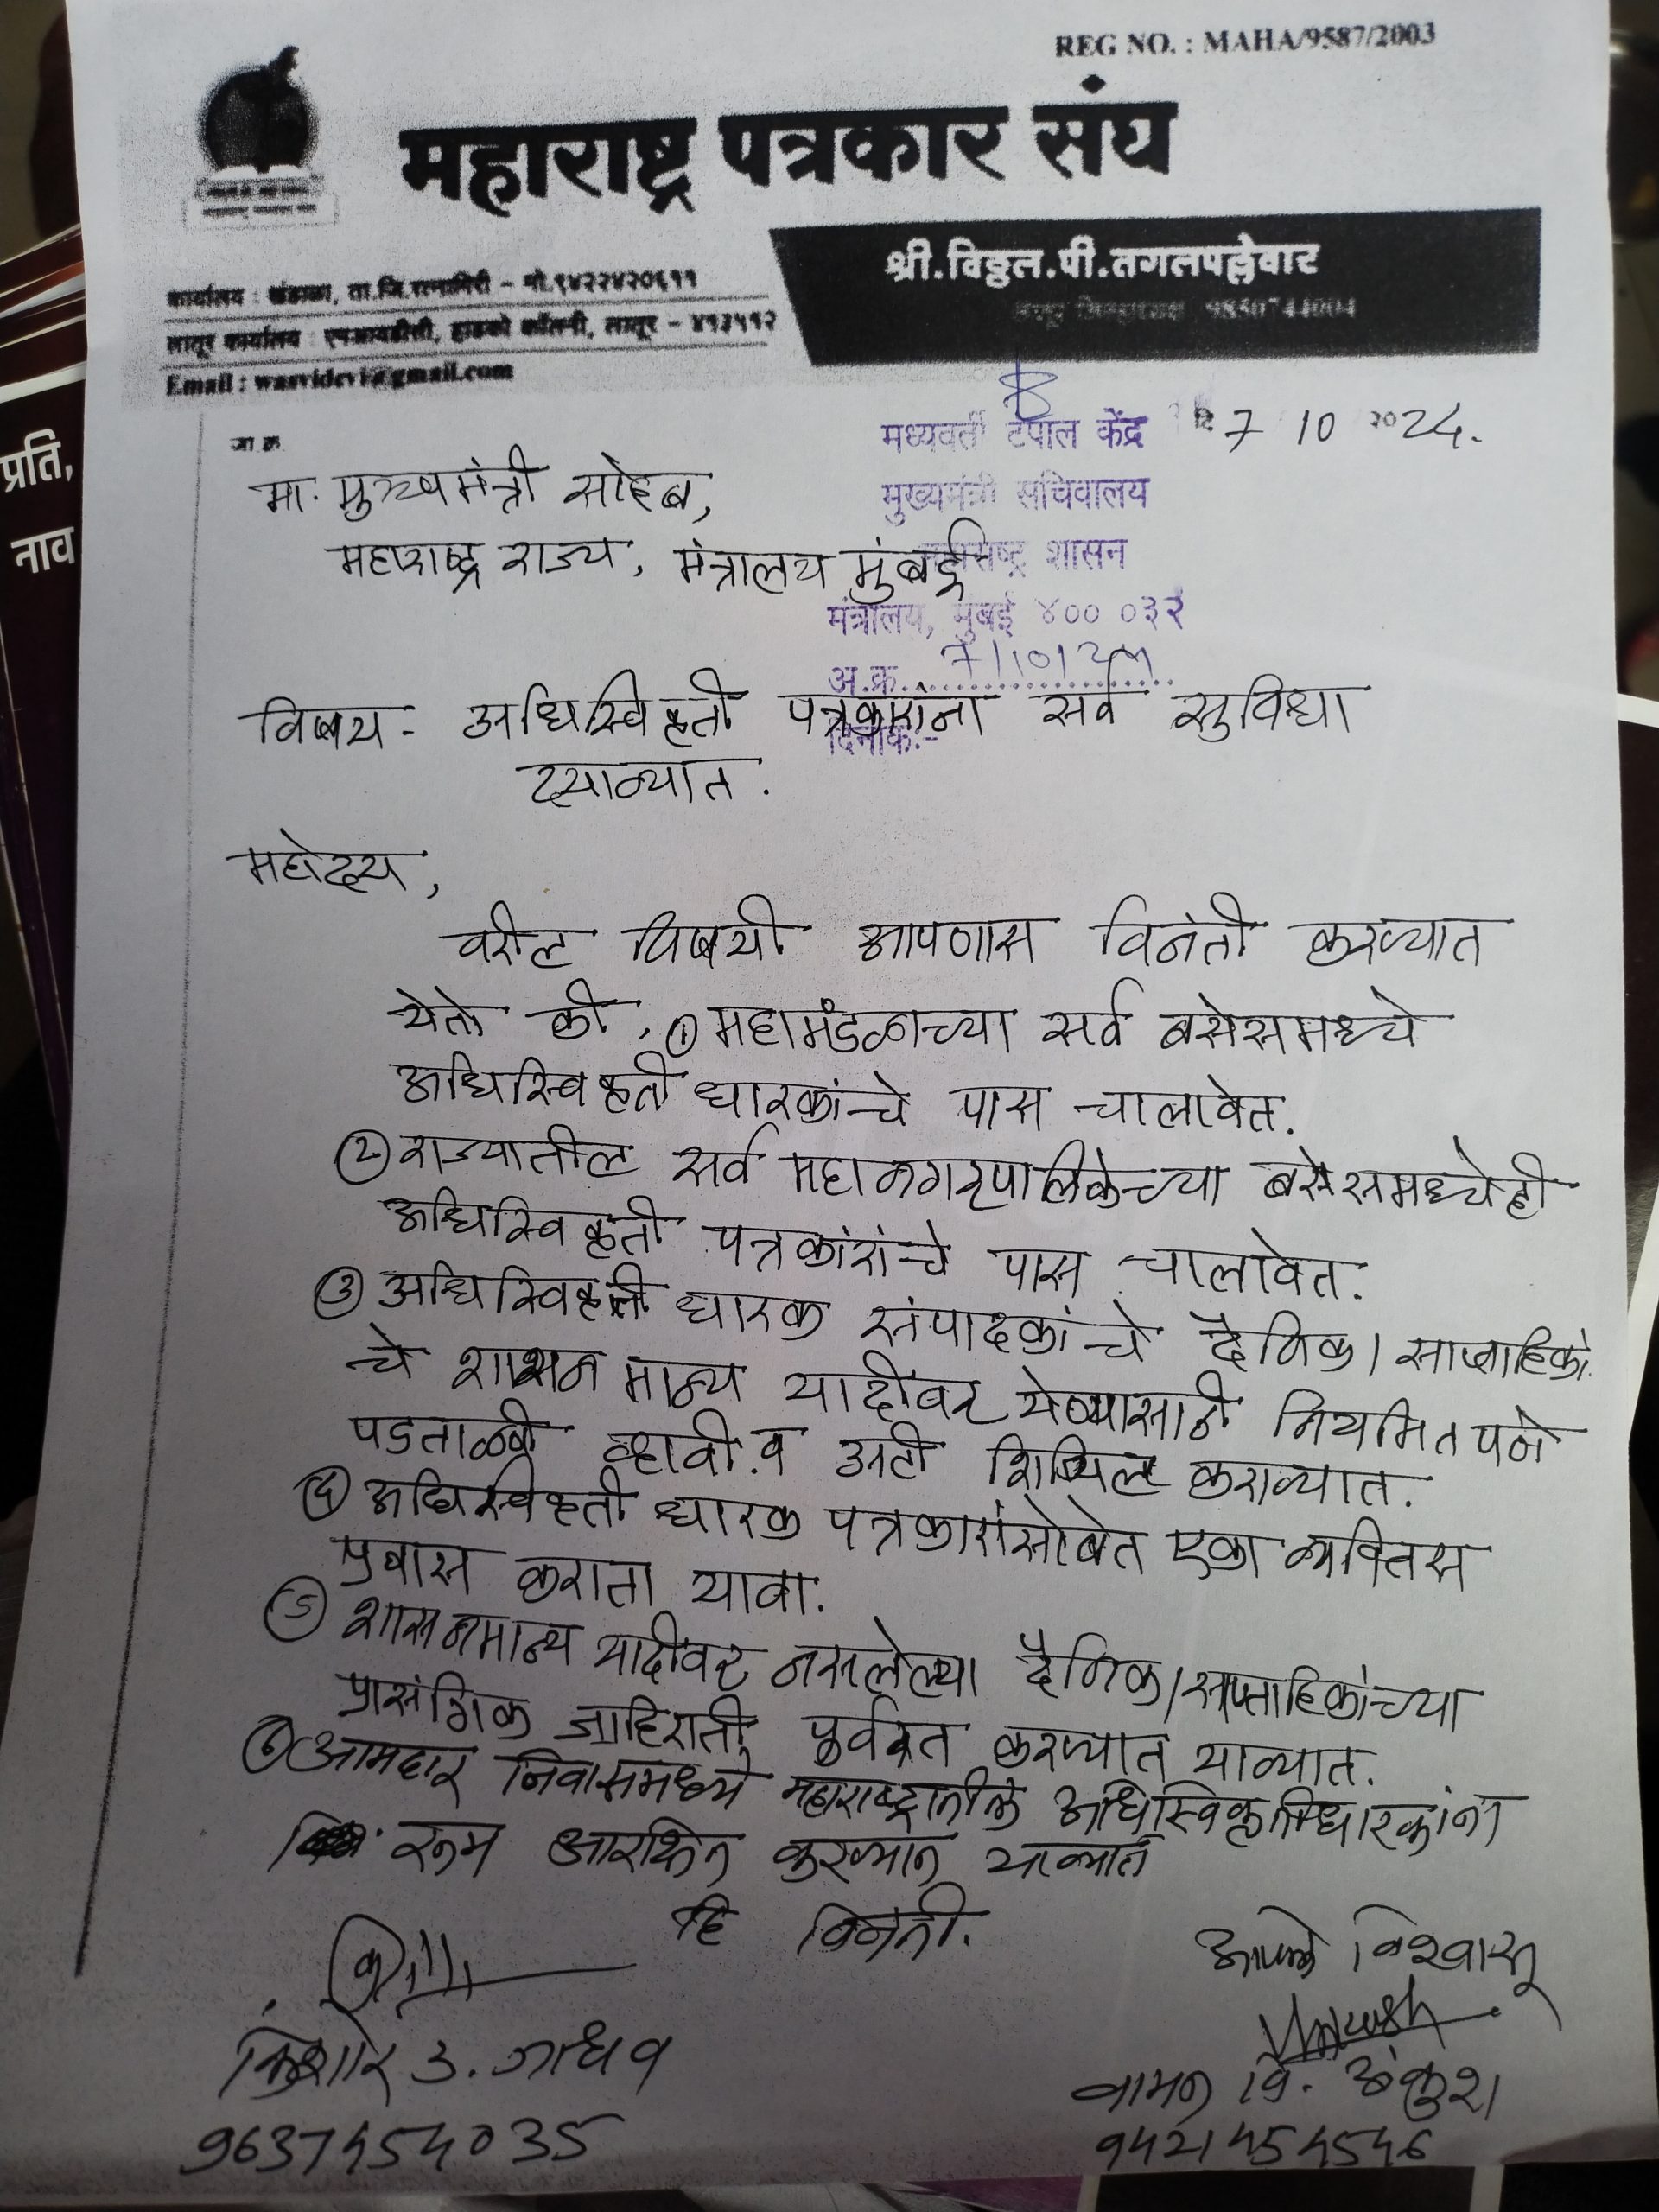 REG NO. : MAHA/9587/2003
महाराष्ट्र पत्रकार संघ
श्री.विठ्ठल.पी.तगलपल्लेवार
लातूर जिल्हाध्यक्ष 9850744004
कार्यालय : खंडाळा, ता.जि.रत्नागिरी - मो.९४२२४२०६११
लातूर कार्यालय : एमआयडीसी, हाडको कॉलनी, लातूर - ४१३५१२
Email : wasvidevi@gmail.com
प्रति,
नाव
जा.क्र.
दि 7 10 २०24.
मध्यवर्ती टपाल केंद्र
मुख्यमंत्री सचिवालय
महाराष्ट्र शासन
मंत्रालय, मुंबई ४०० ०३२
अ.क्र. 7/10/24
दिनांक:-
मा. मुख्यमंत्री साहेब,
महाराष्ट्र राज्य, मंत्रालय मुंबई
विषय - अधिस्विकृती पत्रकारांना सर्व सुविधा
द्याव्यात.
महोदय,
वरील विषयी आपणास विनंती करण्यात
येते की, ① महामंडळाच्या सर्व बसेसमध्ये
अधिस्विकृती धारकांचे पास चालावेत.
② राज्यातील सर्व महानगरपालिकेच्या बसेसमध्येही
अधिस्विकृती पत्रकारांचे पास चालावेत.
③ अधिस्विकृती धारक संपादकांचे दैनिक/साप्ताहिकां
चे शासन मान्य यादीवर येण्यासाठी नियमितपणे
पडताळणी व्हावी.व अटी शिथिल कराव्यात.
④ अधिस्विकृती धारक पत्रकारांसोबत एका व्यक्तिस
प्रवास करता यावा.
⑤ शासनमान्य यादीवर नसलेल्या दैनिक/साप्ताहिकांच्या
प्रासंगिक जाहिराती पुर्ववत करण्यात याव्यात.
⑥ आमदार निवासमध्ये महाराष्ट्रातील अधिस्विकृतीधारकांना
रूम आरक्षित करण्यात याव्यात
हि विनंती.
आपले विश्वासू
किशोर उ. जाधव
9637454035
वामन वि. अंकुश
9421454546